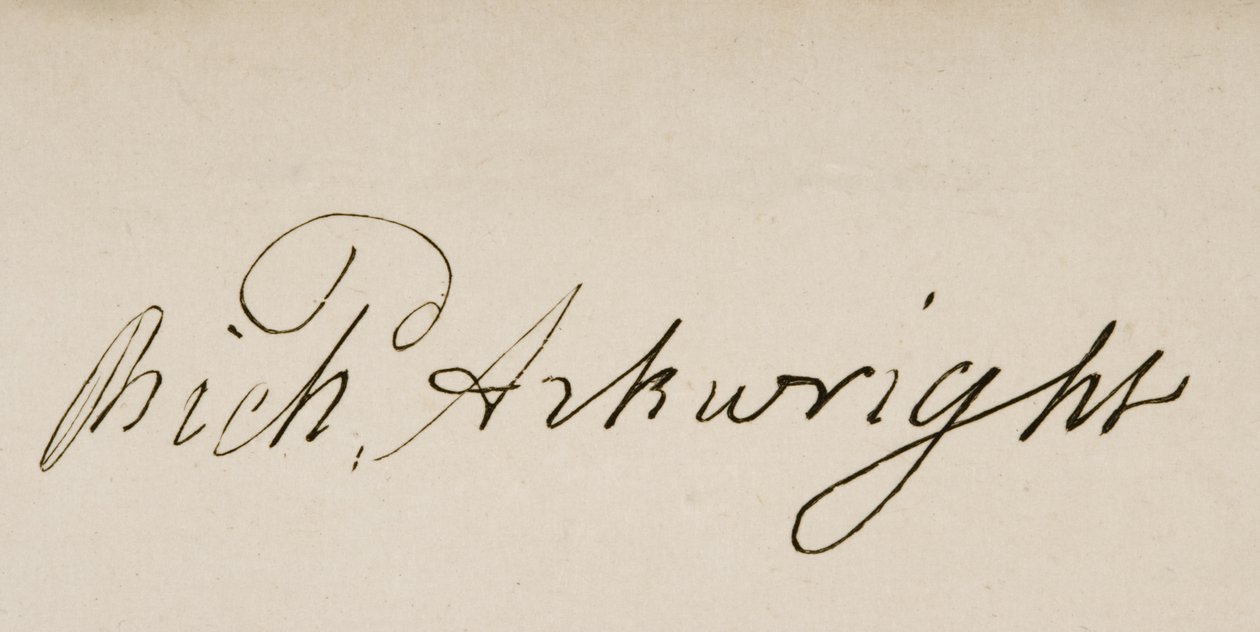 Rich. Arkwright